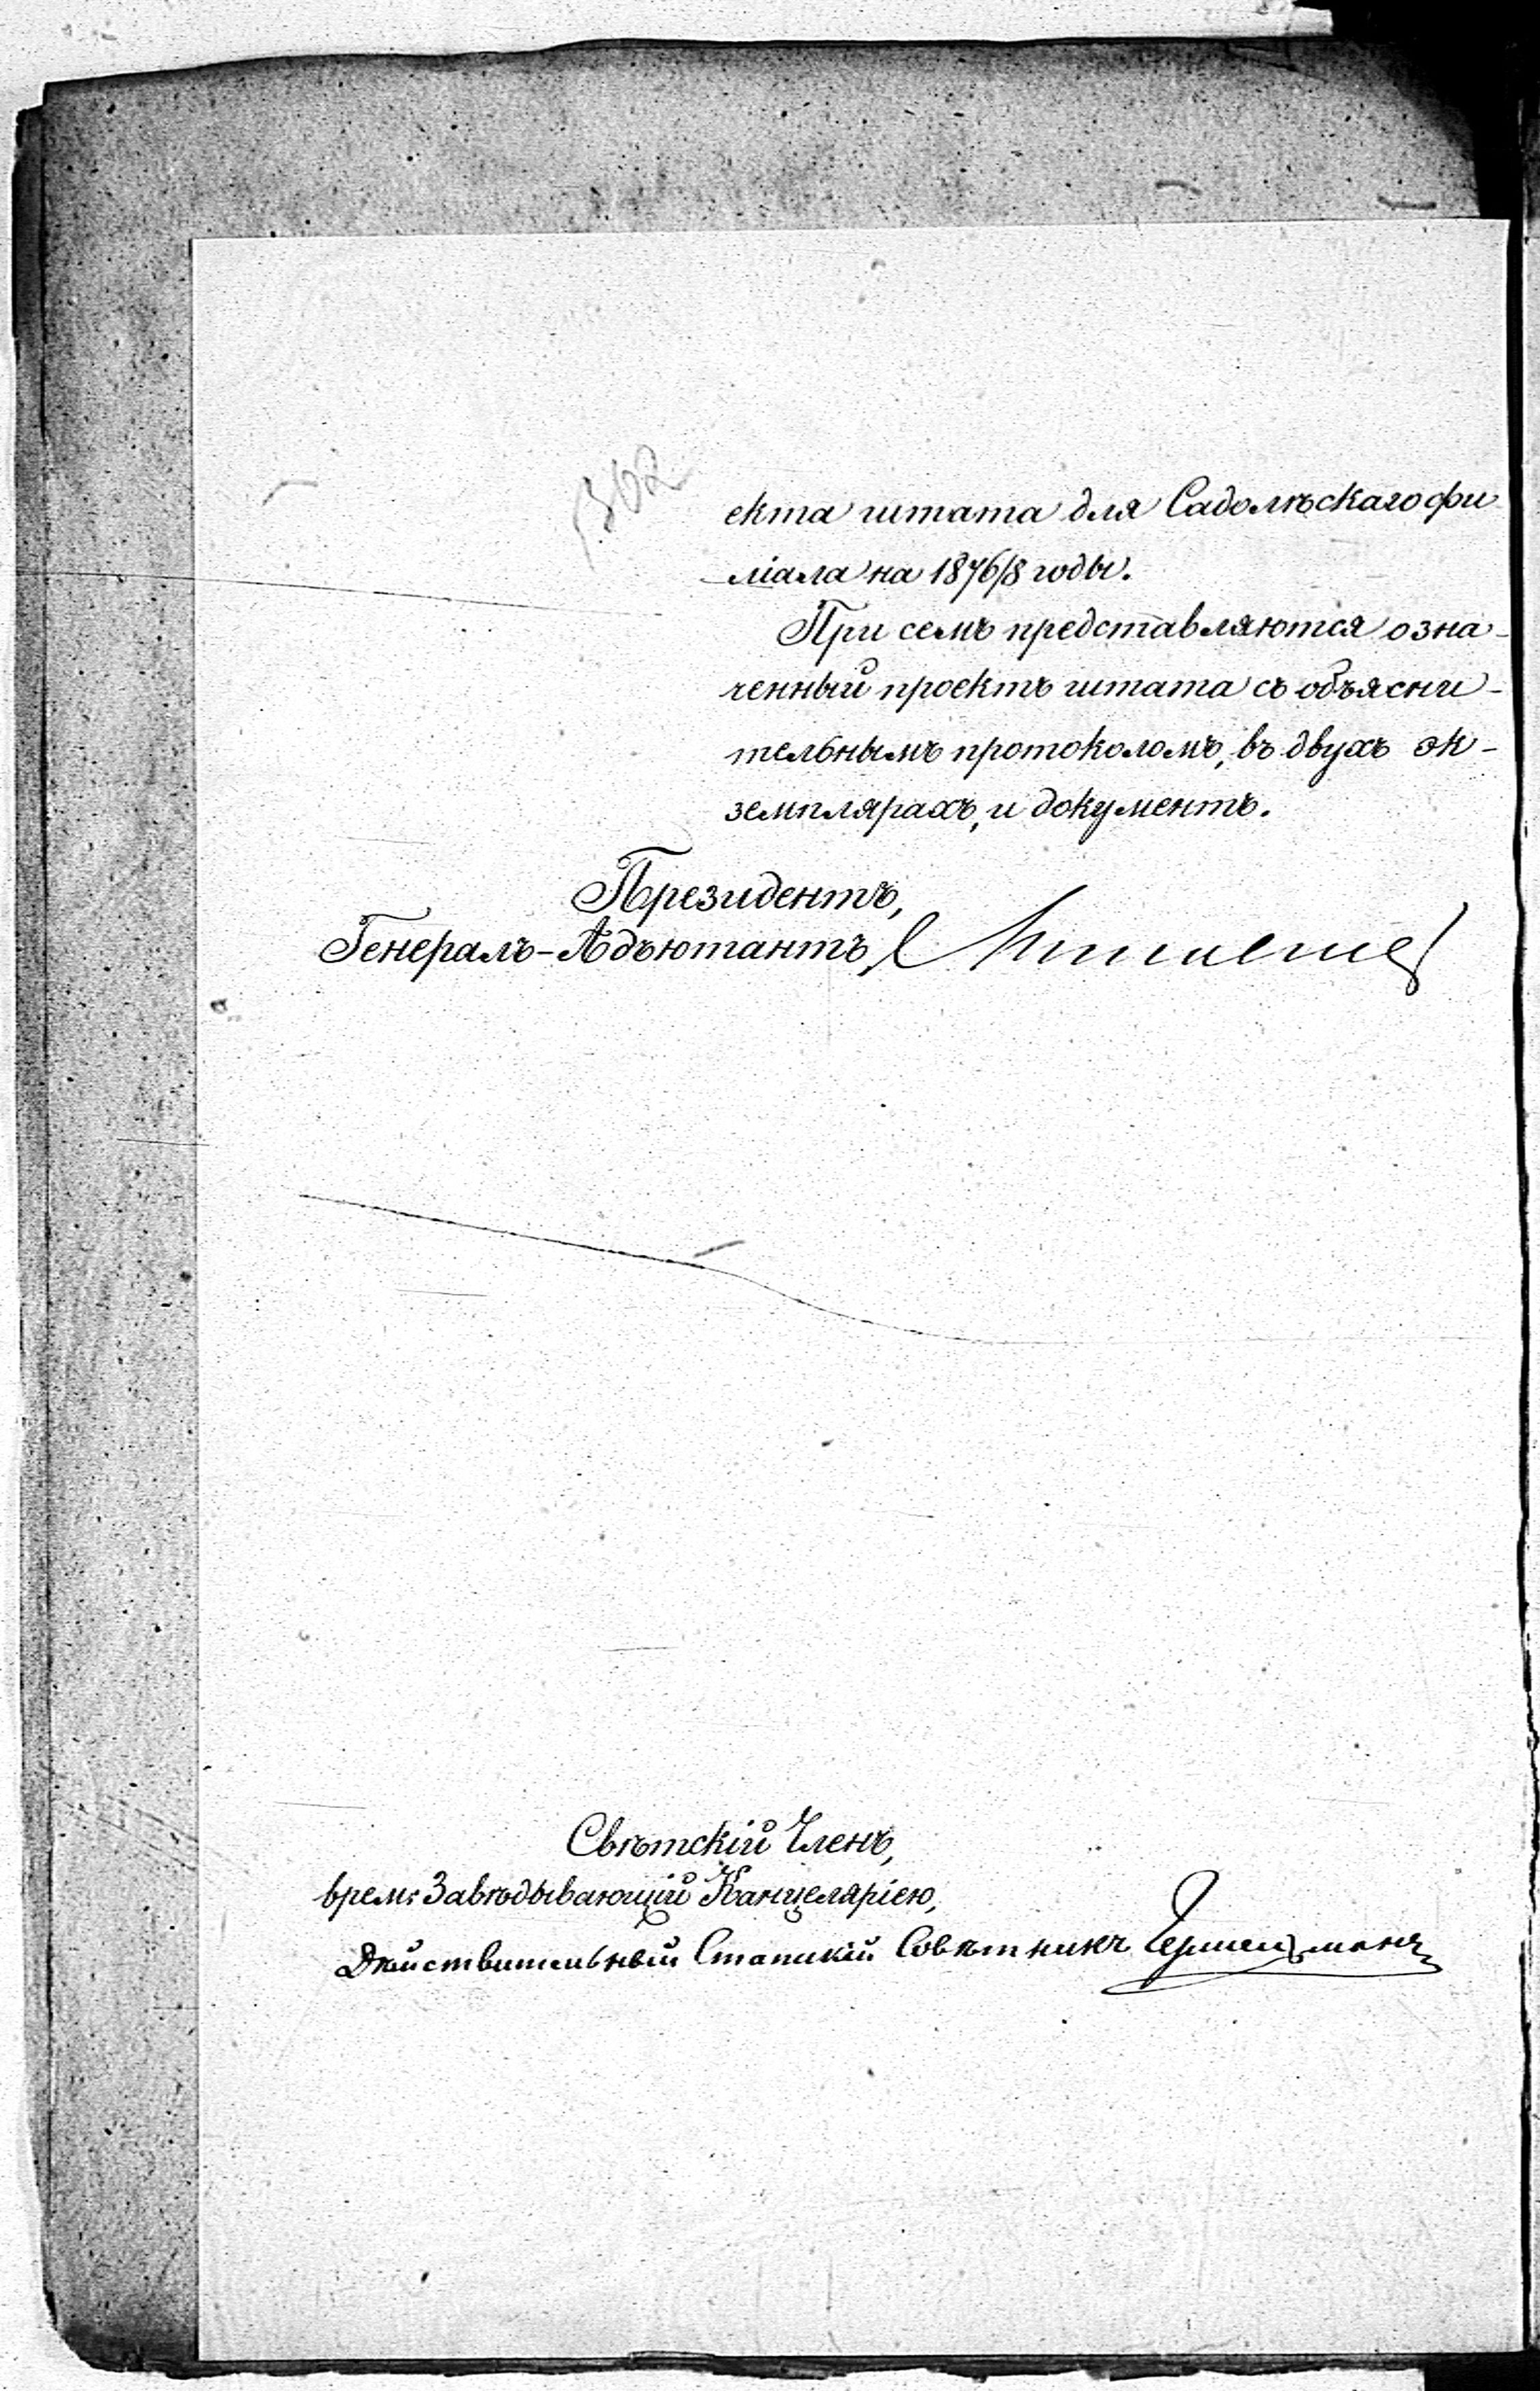 362
екта штата для Садолѣскаго фи
ліала на 1876/8 годы.
При семъ представляются озна-
ченный проектъ штата съ объясни-
тельнымъ протоколомъ, въ двухъ эк-
земплярахъ, и документъ.
Президентъ,
Генералъ-Адъютантъ,
Свѣтскій Членъ,
врем: Завѣдывающій Канцеляріею,
Дѣйствительный Статскій Совѣтникъ